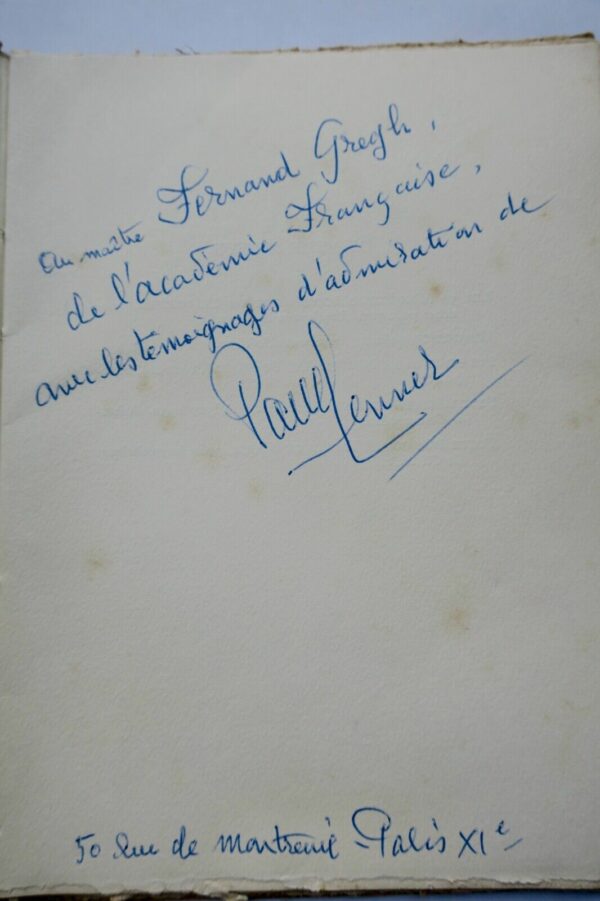 Au maître Fernand Gregh,
de l'académie Française,
avec les témoignages d'admiration de
Paul
50 Rue de Montreuil - Paris XIe